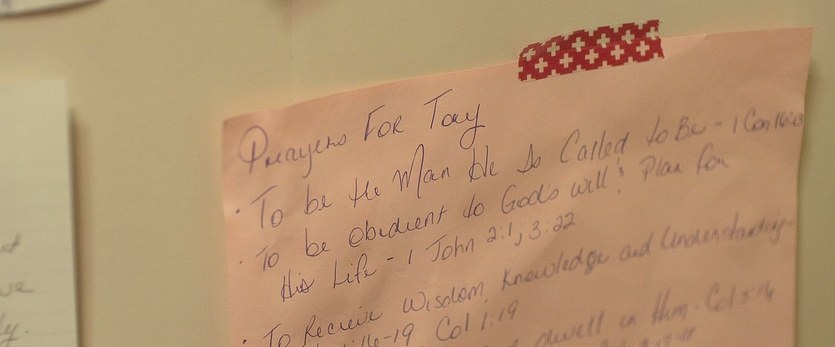 Prayers For Tay
· To be the Man He Is Called to Be - 1 Cor 16:13
· To be Obedient to God's will & Plan for
His Life - 1 John 2:1, 3:22
· To Receive Wisdom, Knowledge and Understanding -
-19 Col 1:19
dwell in Him - Col 3:16